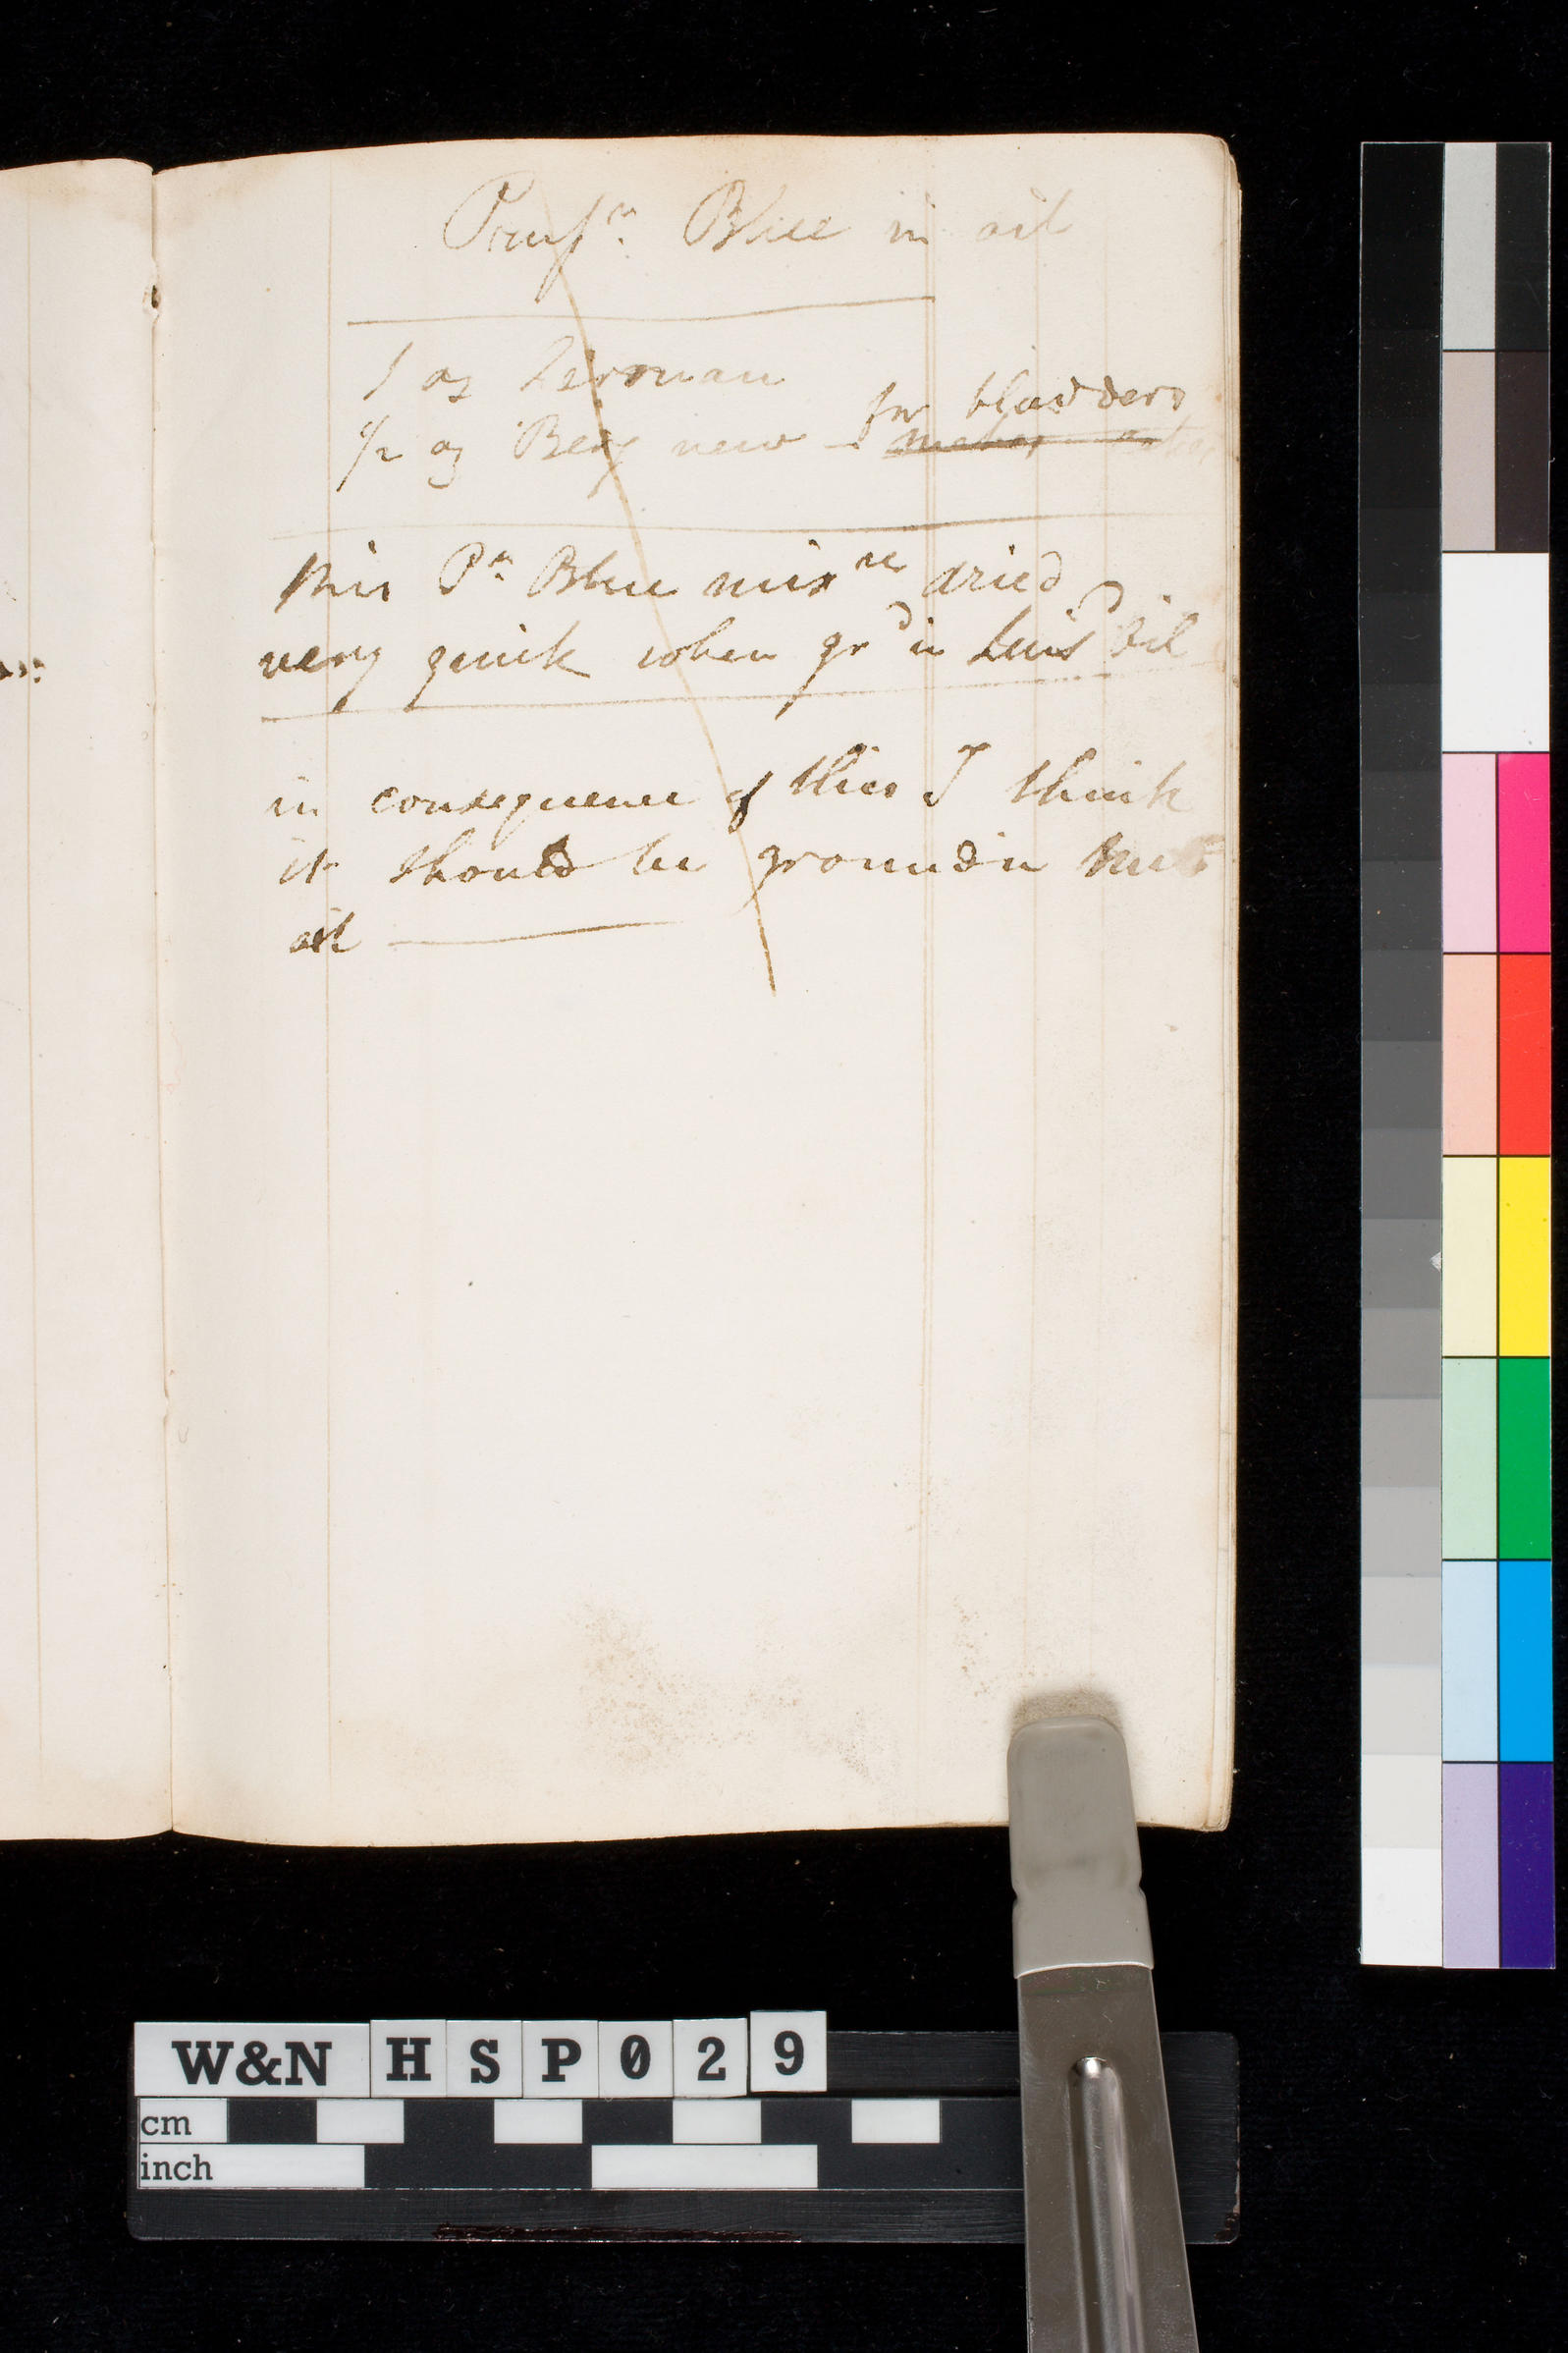 Prusn. Blue in oil
1 oz German
1/2 oz Berg new – for bladders
this Pn. Blue mixre dried
very quick when grd in Linsd oil
in consequence of this I think
it should be ground in nut
oil
W&N HSP029
cm
inch